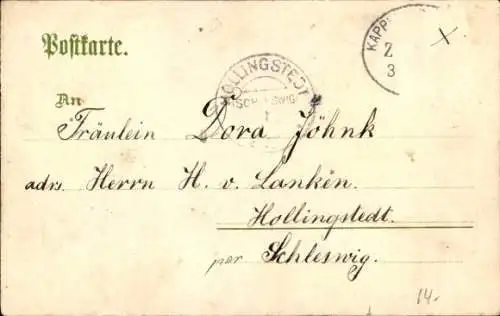 Postkarte.
KAPP
2
3
HOLLINGSTEDT
An
Fräulein Dora Jöhnk
adrs. Herrn H. v. Lanken.
Hollingstedt.
per Schleswig.
14.